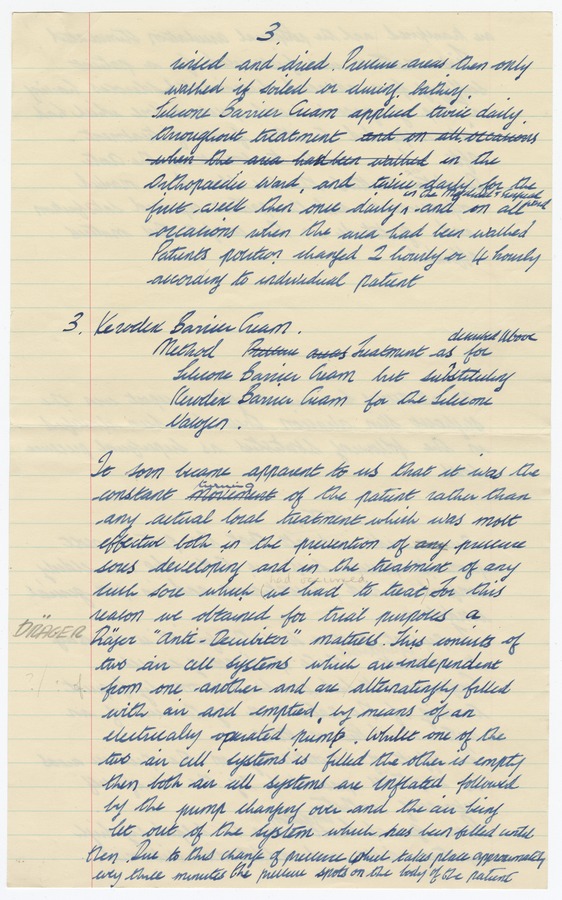 3.
rinsed and dried. Pressure areas then only
washed if soiled or during bathing.
Silicone Barrier Cream applied twice daily
throughout treatment and on all occasions
when the area had been washed in the
Orthopaedic Ward, and twice daily for the
in the Medical + Surgical Ward
first week then once daily, and on all
occasions when the area had been washed
Patients position changed 2 hourly or 4 hourly
according to individual patient
3. Kerodex Barrier Cream.
described above
Method Pressure areas Treatment as for
Silicone Barrier Cream but substituting
Kerodex Barrier Cream for the Silicone
It soon became apparent to us that it was the
turning
constant movement of the patient rather than
any actual local treatment which was most
effective both in the prevention of any pressure
sores developing and in the treatment of any
had occurred
such sore which (we had to treat) For this
reason we obtained for trial purposes a
DRÄGER
Räger "Anti-Decubitor" mattress. This consists of
two air cell systems which are independent
?/
from one another and are alternatingly filled
with air and emptied, by means of an
electrically operated pump. Whilst one of the
two air cell systems is filled the other is empty
then both air cell systems are inflated followed
by the pump changing over and the air being
let out of the system which has been filled until
then. Due to this change of pressure which takes place approximately
every three minutes the pressure spots on the body of the patient